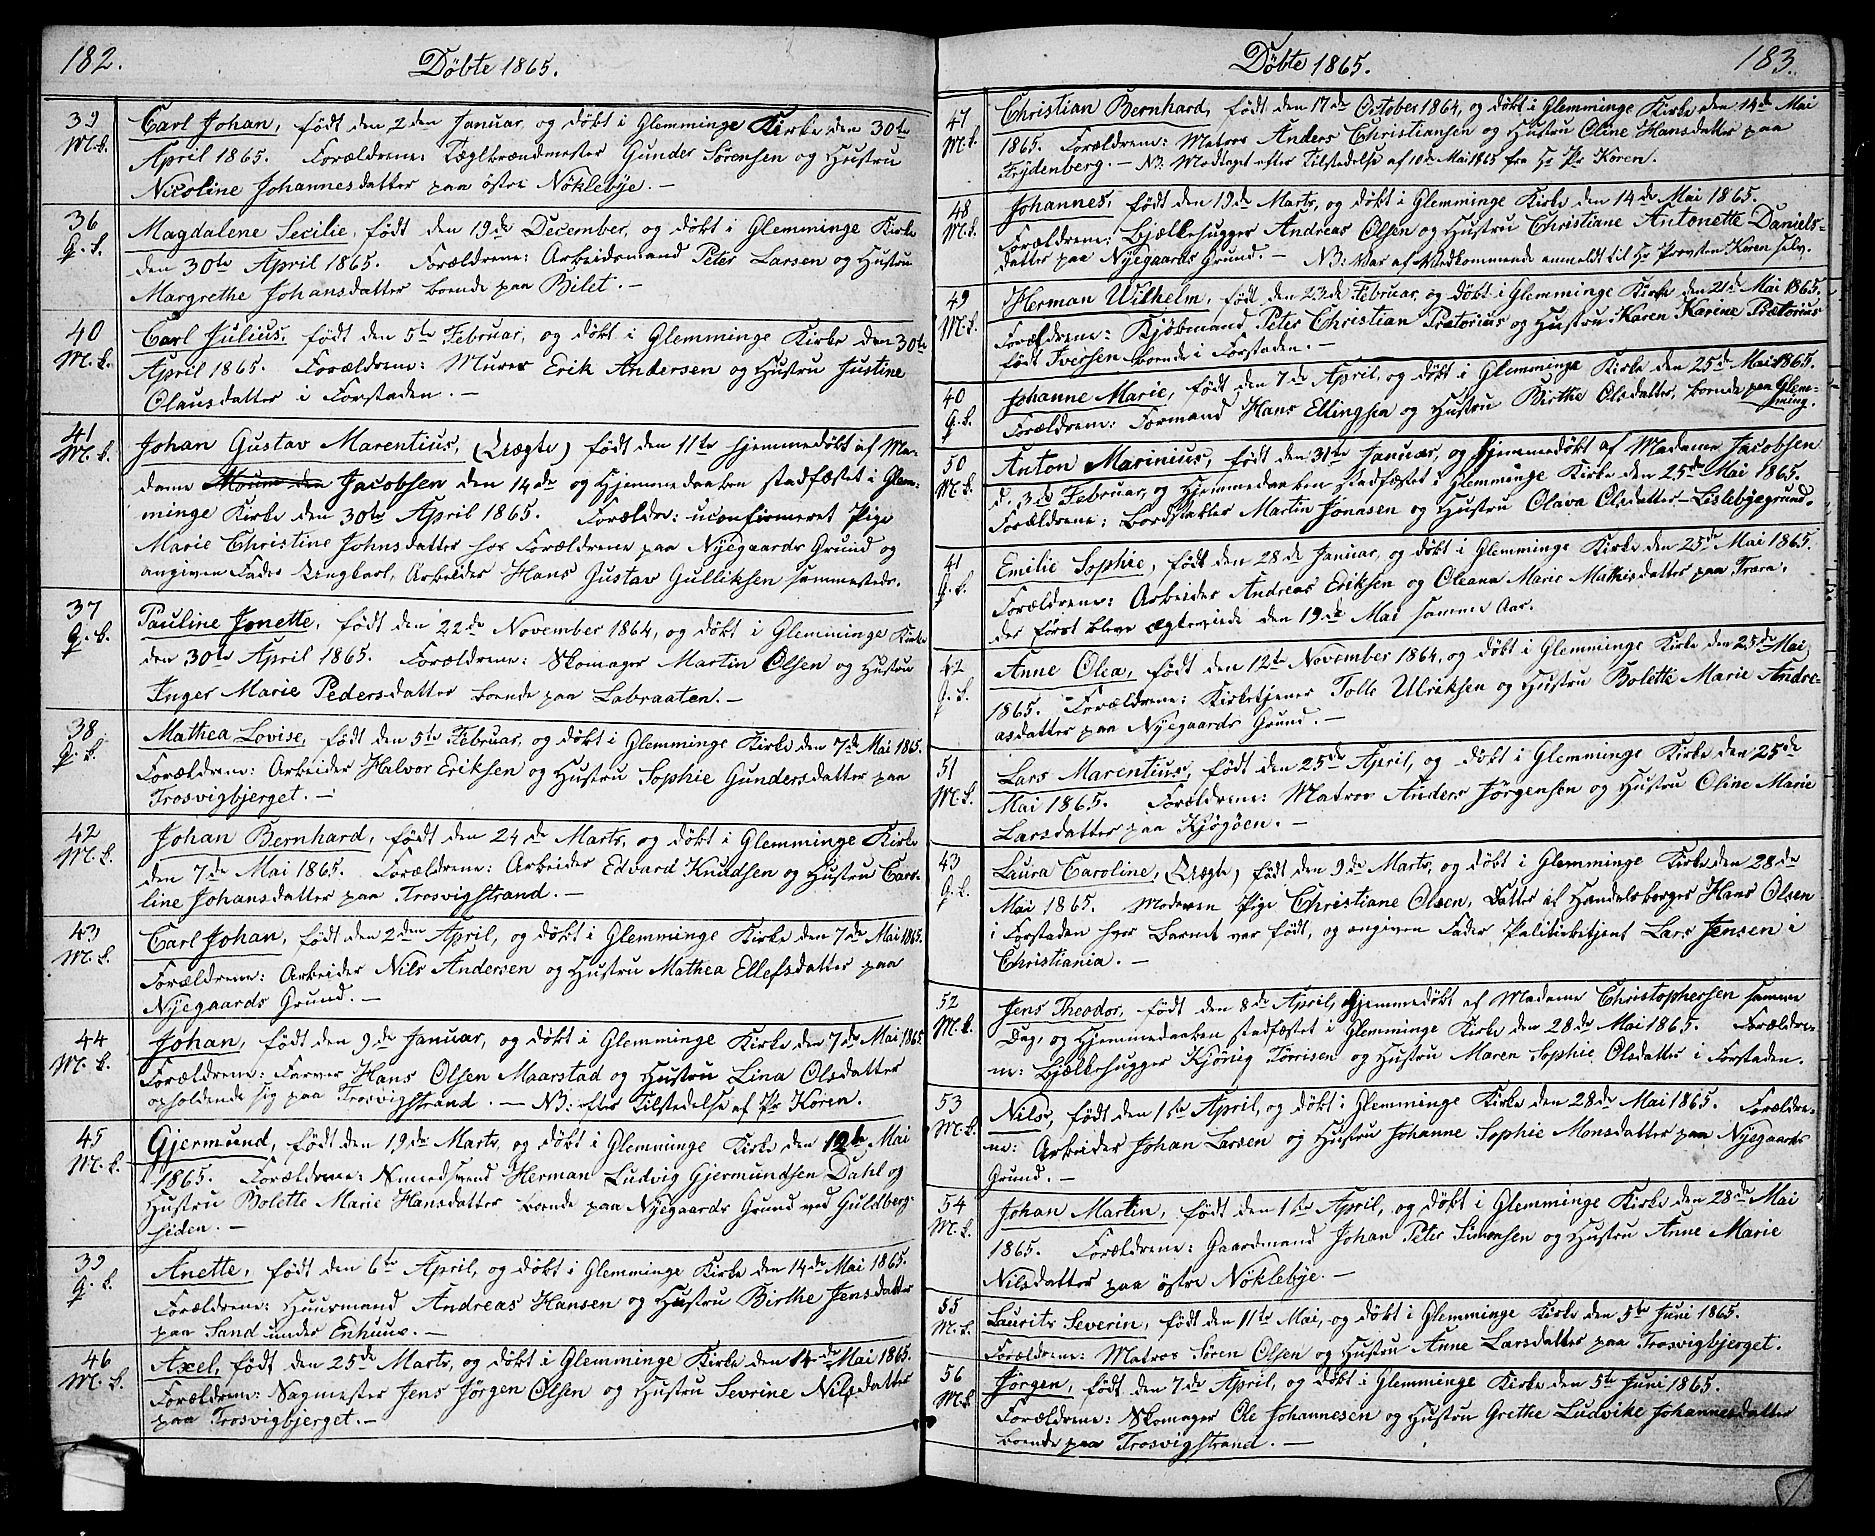 182.
Döbte 1865.
39 M.k. Carl Johan, født den 2den Januar, og døbt i Glemminge Kirke den 30te
April 1865. Forældrene: Teglbrændmester Gunder Sörensen og Hustru
Nicoline Johannesdatter paa östre Nöklebye. —
36 Q.k. Magdalene Secilie, født den 19de December, og døbt i Glemminge Kirke
den 30te April 1865. Forældrene: Arbeidsmand Peter Larsen og Hustru
Margrethe Johansdatter boende paa Bilet. —
40 M.k. Carl Julius, født den 5te Februar, og døbt i Glemminge Kirke den 30te
April 1865. Forældrene: Murer Erik Andersen og Hustru Justine
Clausdatter i Forstaden. —
41 M.k. Johan Gustav Marentius, (Uægte) født den 11te hjemmedøbt af Ma-
dame Jacobsen den 14de og Hjemmedaaben stadfæstet i Glem-
minge Kirke den 30te April 1865. Forældre: uconfirmeret Pige
Marie Christine Johnsdatter hos Forældrene paa Nyegaards Grund og
angiven Fader Ungkarl, Arbeider Hans Gustav Gulliksen sammesteds.
37 Q.k. Pauline Jonette, født den 22de November 1864, og døbt i Glemminge Kirke
den 30te April 1865. Forældrene: Skomager Martin Olsen og Hustru
Inger Marie Pedersdatter boende paa Labraaten. —
38 Q.k. Mathea Lovise, født den 5te Februar, og døbt i Glemminge Kirke den 7de Mai 1865.
Forældrene: Arbeider Halvor Eriksen og Hustru Sophie Gundersdatter paa
Trosvigbjerget. —
42 M.k. Johan Bernhard, født den 24de Marts, og døbt i Glemminge Kirke
den 7de Mai 1865. Forældrene: Arbeider Edvard Knudsen og Hustru Caro-
line Johansdatter paa Trosvigstrand. —
43 M.k. Carl Johan, født den 2den April, og døbt i Glemminge Kirke den 7de Mai 1865.
Forældrene: Arbeider Nils Andersen og Hustru Mathea Ellefsdatter paa
Nyegaards Grund. —
44 M.k. Johan, født den 9de Januar, og døbt i Glemminge Kirke den 7de Mai 1865
Forældrene: Farver Hans Olsen Maarstad og Hustru Lina Olsdatter
opholdende sig paa Trosvigstrand. — NB: efter Tilstedelse af Pr Koren.
45 M.k. Gjermund, født den 19de Marts, og døbt i Glemminge Kirke den 12de Mai
1865. Forældrene: Smedsvend Herman Ludvig Gjermundsen Dahl og
Hustru Bolette Marie Hansdatter boende paa Nyegaards Grund ved Guldberg-
siden. —
39 Q.k. Anette, født den 6te April, og døbt i Glemminge Kirke den 14de Mai 1865.
Forældrene: Huusmand Andreas Hansen og Hustru Birthe Jensdatter
paa Sand under Enhuus. —
46 M.k. Axel, født den 25de Marts, og døbt i Glemminge Kirke den 14de Mai 1865.
Forældrene: Sagmester Jens Jörgen Olsen og Hustru Sevrine Nilsdatter
paa Trosvigbjerget. —
183.
Döbte 1865.
47 M.k. Christian Bernhard, født den 17de October 1864, og døbt i Glemminge Kirke den 14de Mai
1865. Forældrene: Matros Anders Christiansen og Hustru Oline Hansdatter paa
Frydenberg. — NB. Modtaget efter Tilstedelse af 10de Mai 1865 fra Hr Pr Koren.
48 M.k. Johannes, født den 19de Marts, og døbt i Glemminge Kirke den 14de Mai 1865.
Forældrene: Bjælkehugger Andreas Olsen og Hustru Christiane Antonette Daniels-
datter paa Nyegaards Grund. — NB: Var af Vedkommende anmeldt til Hr Provsten Koren selv.
49 M.k. Herman Wilhelm, født den 23de Februar, og døbt i Glemminge Kirke den 21de Mai 1865.
Forældrene: Kjöbmand Peter Christian Prætorius og Hustru Karen Karine Prætorius
født Iversen boende i Forstaden. —
40 Q.k. Johanne Marie, født den 7de April, og døbt i Glemminge Kirke den 25de Mai 1865.
Forældrene: Formand Hans Ellingsen og Hustru Birthe Olsdatter, boende paa Glem-
ming.
50 M.k. Anton Marinius, født den 31te Januar, og hjemmedøbt af Madame Jacobsen
d. 3de Februar, og Hjemmedaaben stadfæstet i Glemminge Kirke den 25de Mai 1865.
Forældrene: Bordstabler Martin Jonasen og Hustru Olava Olsdatter Lislebyegrund.
41 Q.k. Emilie Sophie, født den 28de Januar, og døbt i Glemminge Kirke den 25de Mai 1865.
Forældrene: Arbeider Andreas Eriksen og Oleana Marie Mathisdatter paa Trara,
der først bleve ægteviede den 19de Mai samme Aar.
42 Q.k. Anne Olea, født den 12te November 1864, og døbt i Glemminge Kirke den 25de Mai
1865. Forældrene: Kirketjener Tolle Ulriksen og Hustru Bolette Marie Andre-
asdatter paa Nyegaards Grund. —
51 M.k. Lars Marentius, født den 25de April, og døbt i Glemminge Kirke den 25de
Mai 1865. Forældrene: Matros Anders Jörgensen og Hustru Oline Marie
Larsdatter paa Kjögöen. —
43 Q.k. Laura Caroline, (Uægte) født den 9de Marts, og døbt i Glemminge Kirke den 28de
Mai 1865. Moderen Pige Christiane Olsen, Datter af Handelsborger Hans Olsen
i Forstaden hvor Barnet var født, og angiven Fader Politibetjent Lars Jensen i
Christiania. —
52 M.k. Jens Theodor, født den 8de April, hjemmedøbt af Madame Christophersen samme
Dag, og Hjemmedaaben stadfæstet i Glemminge Kirke den 28de Mai 1865. Forældre-
ne: Bjælkehugger Kjörrig Torrisen og Hustru Maren Sophie Olsdatter i Forstaden.
53 M.k. Nils, født den 1ste April, og døbt i Glemminge Kirke den 28de Mai 1865. Forældre-
ne: Arbeider Johan Larsen og Hustru Johanne Sophie Monsdatter paa Nyegaards
Grund. —
54 M.k. Johan Martin, født den 1ste April, og døbt i Glemminge Kirke den 28de Mai
1865. Forældrene: Gaardmand Johan Peter Simensen og Hustru Anne Marie
Nilsdatter paa östre Nöklebye. —
55 M.k. Laurits Severin, født den 11te Mai, og døbt i Glemminge Kirke den 5te Juni 1865.
Forældrene: Matros Sören Olsen og Hustru Anne Larsdatter paa Trosvigbjerget.
56 M.k. Jörgen, født den 7de April, og døbt i Glemminge Kirke den 5te Juni 1865.
Forældrene: Skomager Ole Johannesen og Hustru Grethe Ludvike Johannesdatter
boende paa Trosvigstrand. —